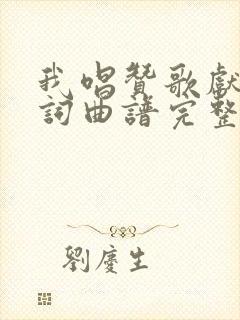 我唱贊歌獻
詞曲譜完整
劉慶生